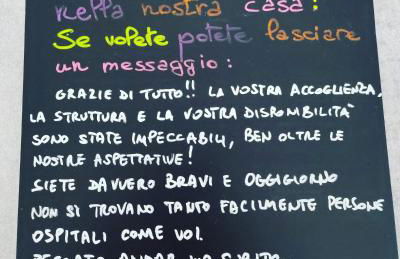 nella nostra casa!
Se volete potete lasciare
un messaggio:
GRAZIE DI TUTTO!! LA VOSTRA ACCOGLIENZA,
LA STRUTTURA E LA VOSTRA DISPONIBILITÀ
SONO STATE IMPECCABILI, BEN OLTRE LE
NOSTRE ASPETTATIVE!
SIETE DAVVERO BRAVI E OGGIGIORNO
NON SI TROVANO TANTO FACILMENTE PERSONE
OSPITALI COME VOI.
PECCATO ANDAR VIA SUBITO